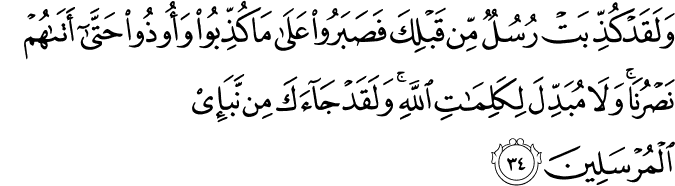 وَلَقَدۡ كُذِّبَتۡ رُسُلٌ مِّن قَبۡلِكَ فَصَبَرُواْ عَلَىٰ مَا كُذِّبُواْ وَأُوذُواْ حَتَّىٰٓ أَتَىٰهُمۡ
نَصۡرُنَاۚ وَلَا مُبَدِّلَ لِكَلِمَٰتِ ٱللَّهِۚ وَلَقَدۡ جَآءَكَ مِن نَّبَإِيْ
ٱلۡمُرۡسَلِينَ ٣٤